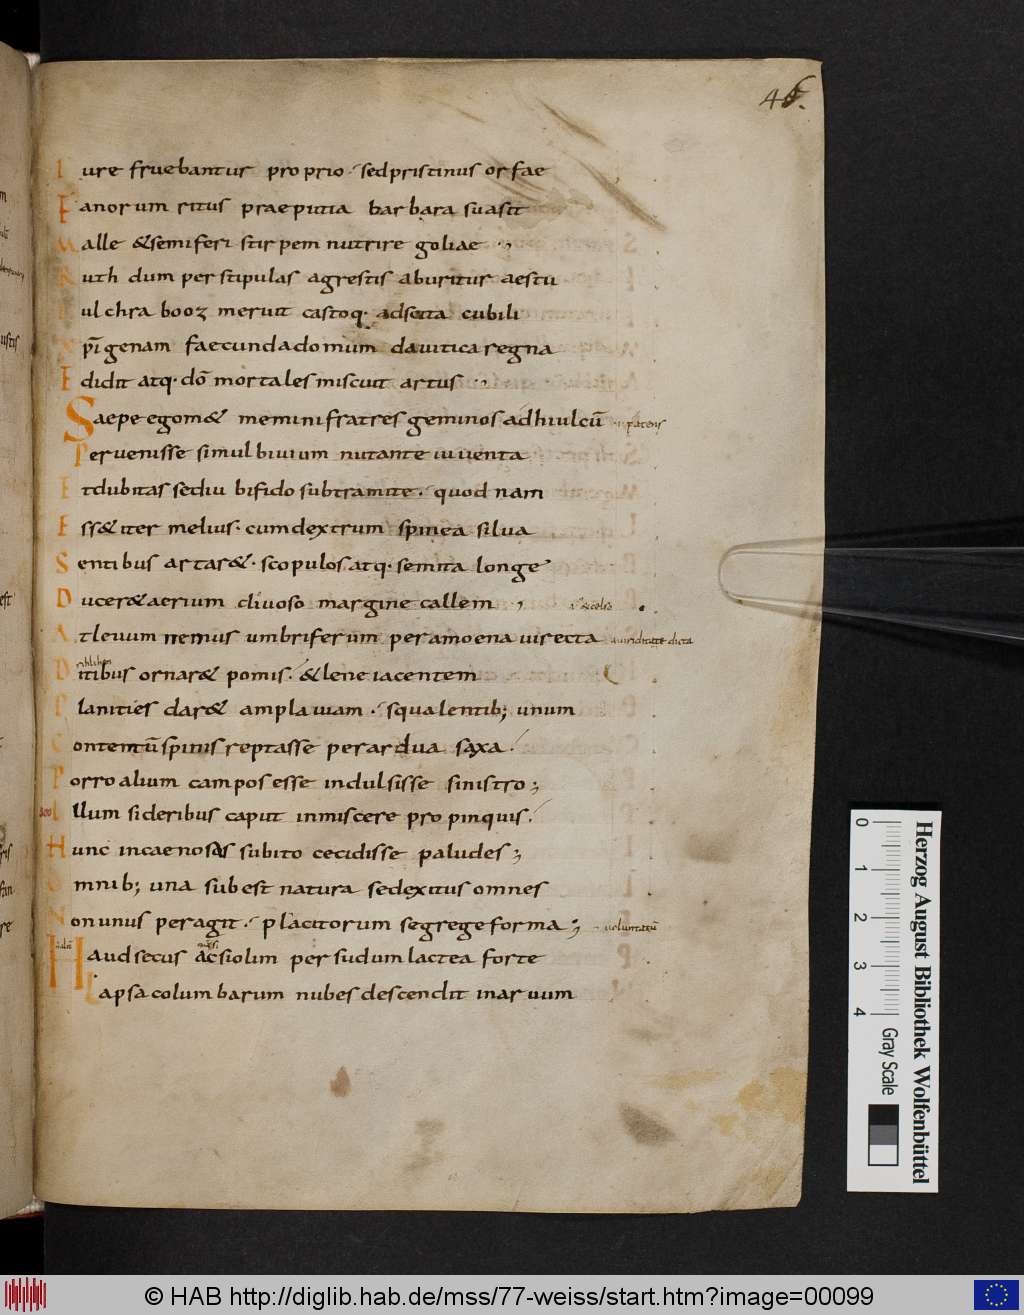 46.
Iure fruebantur proprio. sed pristinus orfae
Fanorum ritus praepitia barbara suasit
Malle & semiferi stirpem nutrire goliae
Ruth dum per stipulas agrestis aburitur aestu
Pulchra booz meruit castoq. adscita cubili
Xp̄igenam faecunda domum davitica regna
Edidit atq. dō mortales miscuit artus
Saepe egom& memini fratres geminos ad hiulcū
patens
Pervenisse simul bivium nutante iuventa
Et dubitasse diu bifido sub tramite. quod nam
Ess& iter melius. cum dextrum spinea silva
Sentibus artar&. scopulosatq. semita longe
Ducer& aerium clivoso margine callem
excelsū
At levum nemus umbriferum per amoena virecta
a viriditate dicta
Ditibus ornar& pomis. & lene iacentem
Planities dar& ampla viam. squalentib; unum
Contentū spinis reptasse per ardua saxa.
Porro alium campos esse indulsisse sinistro;
Illum sideribus caput inmiscere propinquis.
Hunc in caenosas subito cecidisse paludes;
Omnib; una subest natura sed exitus omnes
Non unus peragit. placitorum segrege forma;
voluntatū
Haud secus ac si olim per sudum lactea forte
Lapsa columbarum nubes descendit in arvum
0 1 2 3 4
Gray Scale
Herzog August Bibliothek Wolfenbüttel
© HAB http://diglib.hab.de/mss/77-weiss/start.htm?image=00099